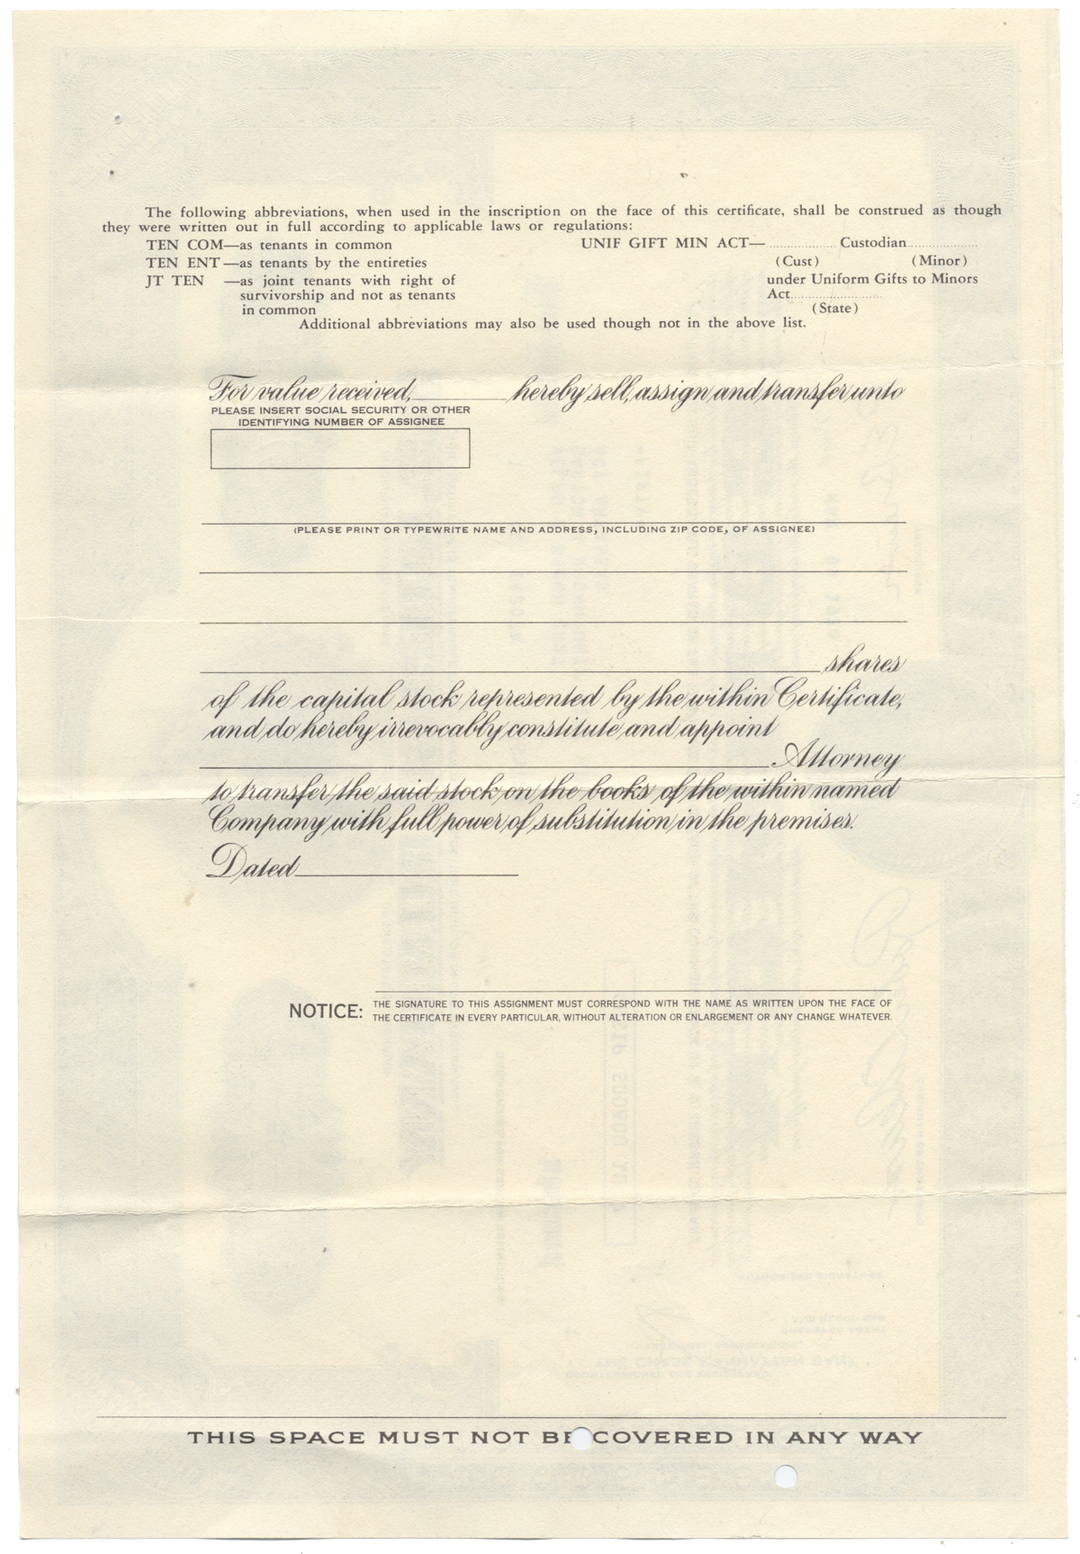 The following abbreviations, when used in the inscription on the face of this certificate, shall be construed as though
they were written out in full according to applicable laws or regulations:
TEN COM—as tenants in common
TEN ENT—as tenants by the entireties
JT TEN —as joint tenants with right of
survivorship and not as tenants
in common
UNIF GIFT MIN ACT—.................. Custodian..................
(Cust) (Minor)
under Uniform Gifts to Minors
Act......................
(State)
Additional abbreviations may also be used though not in the above list.
For value received,__________ hereby sell, assign and transfer unto
PLEASE INSERT SOCIAL SECURITY OR OTHER
IDENTIFYING NUMBER OF ASSIGNEE
(PLEASE PRINT OR TYPEWRITE NAME AND ADDRESS, INCLUDING ZIP CODE, OF ASSIGNEE)
shares
of the capital stock represented by the within Certificate,
and do hereby irrevocably constitute and appoint
Attorney
to transfer the said stock on the books of the within named
Company with full power of substitution in the premises.
Dated
NOTICE: THE SIGNATURE TO THIS ASSIGNMENT MUST CORRESPOND WITH THE NAME AS WRITTEN UPON THE FACE OF
THE CERTIFICATE IN EVERY PARTICULAR, WITHOUT ALTERATION OR ENLARGEMENT OR ANY CHANGE WHATEVER.
THIS SPACE MUST NOT BE COVERED IN ANY WAY